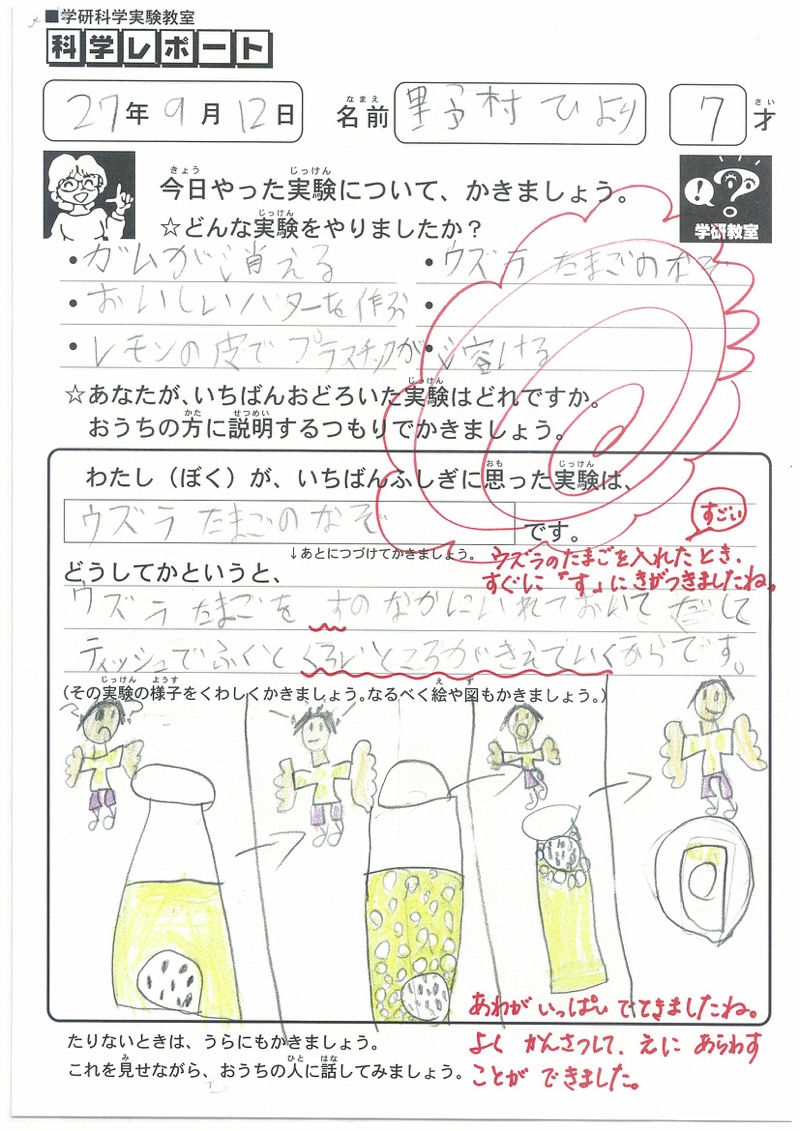 ■学研科学実験教室
科学レポート
27年9月12日 名前 野村ひより 7才
なまえ さい
きょう じっけん
今日やった実験について、かきましょう。
じっけん
☆どんな実験をやりましたか？
学研教室
・ガムが消える ・ウズラたまごのなぞ
・おいしいバターを作ろ ・
・レモンの皮でプラスチックが・溶ける
じっけん
☆あなたが、いちばんおどろいた実験はどれですか。
かた せつめい
おうちの方に説明するつもりでかきましょう。
おも じっけん
わたし（ぼく）が、いちばんふしぎに思った実験は、
すごい
ウズラたまごのなぞ です。
↓あとにつづけてかきましょう。
ウズラのたまごを入れたとき、
すぐに「す」にきがつきましたね。
どうしてかというと、
ウズラたまごをすのなかにいれておいてだして
ティッシュでふくとくろいところがきえていくからです。
じっけん ようす え ず
（その実験の様子をくわしくかきましょう。なるべく絵や図もかきましょう。）
あわがいっぱいでてきましたね。
よくかんさつして、えにあらわす
ことができました。
たりないときは、うらにもかきましょう。
み ひと はな
これを見せながら、おうちの人に話してみましょう。